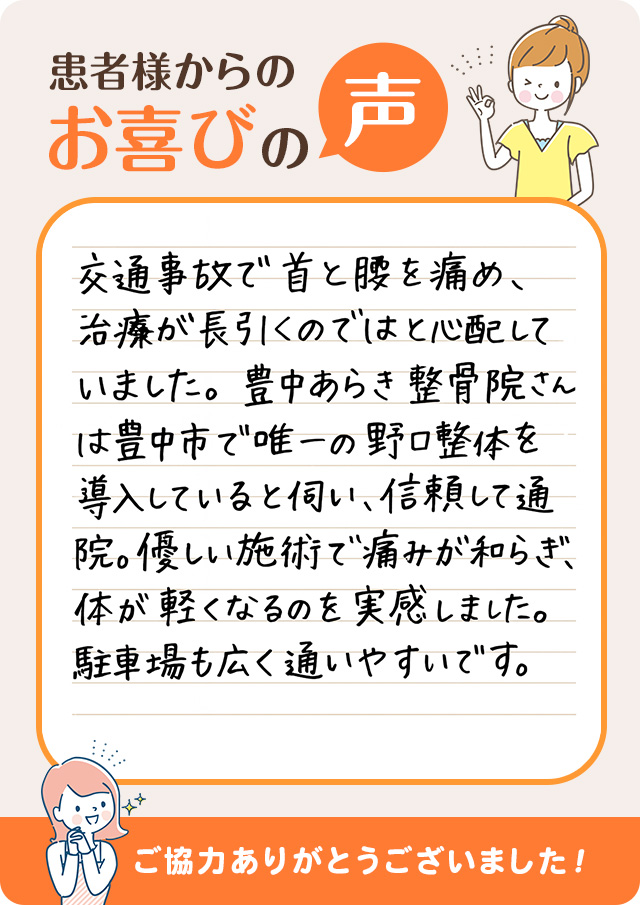 患者様からの
お喜びの声
交通事故で首と腰を痛め、
治療が長引くのではと心配して
いました。豊中あらき整骨院さん
は豊中市で唯一の野口整体を
導入していると伺い、信頼して通
院。優しい施術で痛みが和らぎ、
体が軽くなるのを実感しました。
駐車場も広く通いやすいです。
ご協力ありがとうございました！